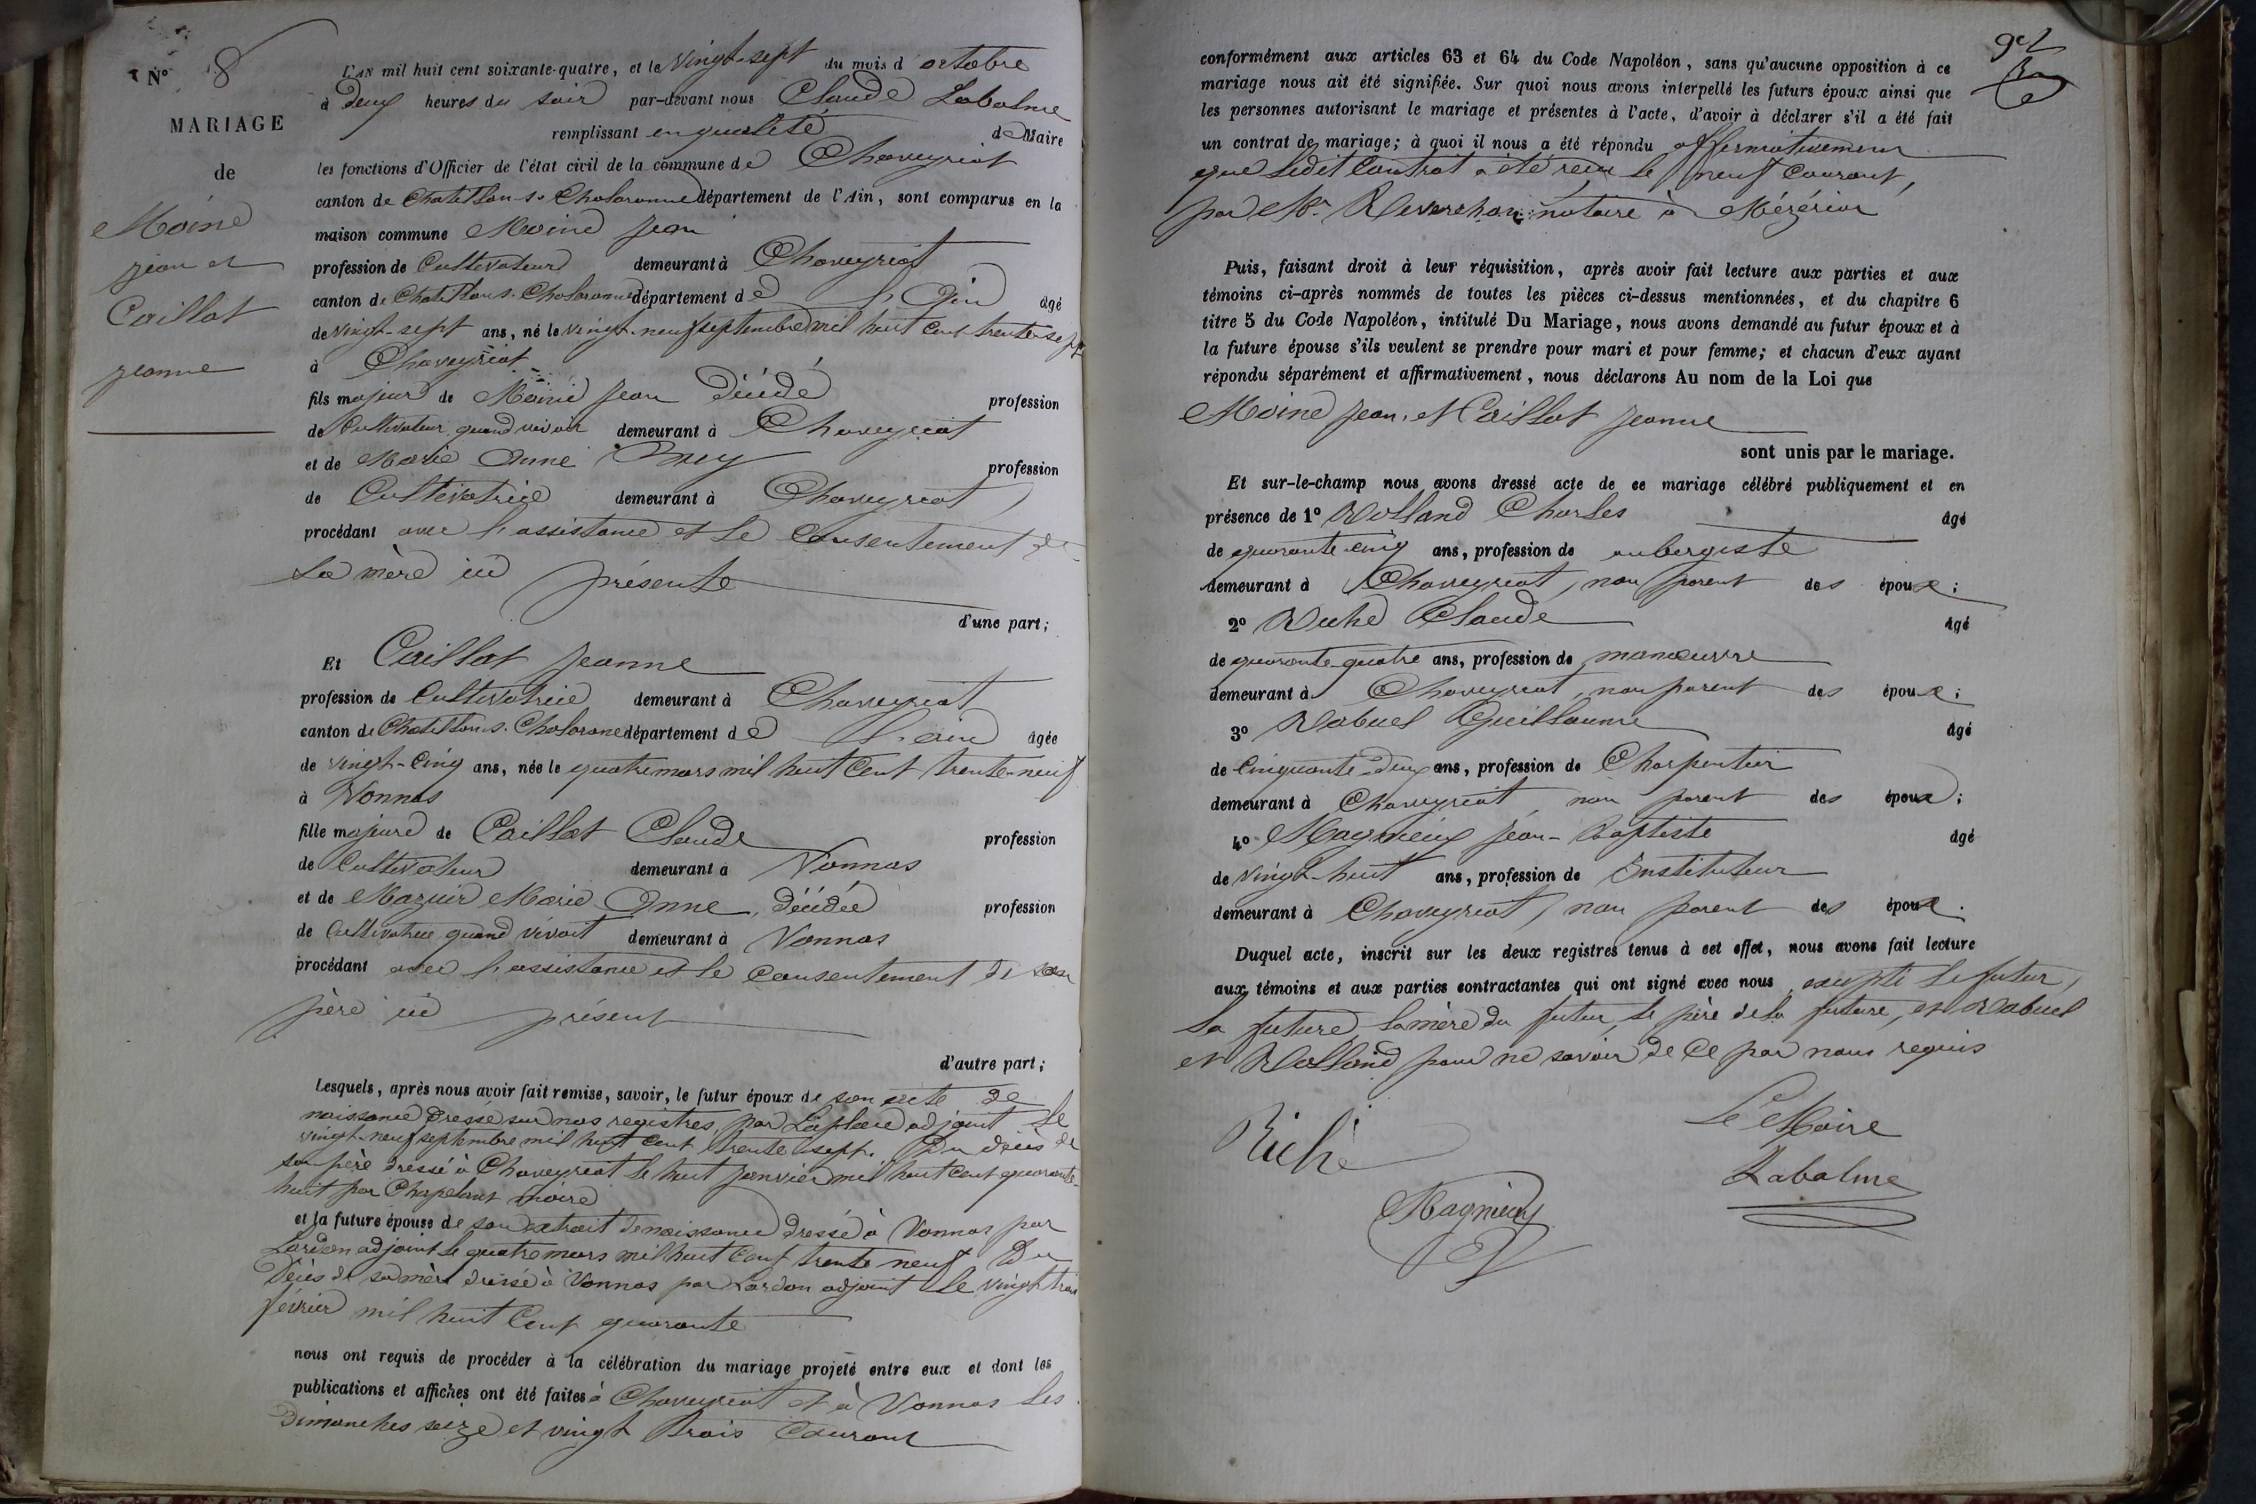 N° 8
MARIAGE
de
Moine
jean et
Caillat
jeanne
L'an mil huit cent soixante-quatre, et le vingt-sept du mois d'octobre
à deux heures du soir par-devant nous Claude Labalme
remplissant en qualité de Maire
les fonctions d'Officier de l'état civil de la commune de Chaveyriat
canton de Chatillon-s-Chalaronne département de l'Ain, sont comparus en la
maison commune Moine jean
profession de Cultivateur demeurant à Chaveyriat
canton de Chatillon-s-Chalaronne département de l'Ain âgé
de vingt-sept ans, né le vingt-neuf septembre mil huit cent trente-sept
à Chaveyriat
fils majeur de Moine jean Décédé profession
de Cultivateur quand vivait demeurant à Chaveyriat
et de Marie Anne Brey profession
de Cultivatrice demeurant à Chaveyriat,
procédant avec l'assistance et le consentement de
la mère ici présente
d'une part;
Et Caillat jeanne
profession de Cultivatrice demeurant à Chaveyriat
canton de Chatillon-s-Chalarone département de l'ain âgée
de vingt-cinq ans, née le quatre mars mil huit cent trente-neuf
à Vonnas
fille majeure de Caillat Claude profession
de Cultivateur demeurant à Vonnas
et de Mazuir Marie Anne, décédée profession
de Cultivatrice quand vivait demeurant à Vonnas
procédant avec l'assistance et le consentement de son
père ici présent
d'autre part;
Lesquels, après nous avoir fait remise, savoir, le futur époux de son acte de
naissance dressé sur nos registres, par Laplace adjoint le
vingt-neuf septembre mil huit cent trente-sept. Du décès de
son père dressé à Chaveyriat le huit janvier mil huit cent quarante-
huit par Chapelant maire
et la future épouse de son extrait de naissance dressé à Vonnas par
Lardon adjoint le quatre mars mil huit cent trente neuf Du
Décès de sa mère dressé à Vonnas par Lardon adjoint le vingt trois
février mil huit cent quarante
nous ont requis de procéder à la célébration du mariage projeté entre eux et dont les
publications et affiches ont été faites à Chaveyriat et à Vonnas les
Dimanches seize et vingt trois Courant
conformément aux articles 63 et 64 du Code Napoléon, sans qu'aucune opposition à ce
mariage nous ait été signifiée. Sur quoi nous avons interpellé les futurs époux ainsi que
les personnes autorisant le mariage et présentes à l'acte, d'avoir à déclarer s'il a été fait
un contrat de mariage; à quoi il nous a été répondu affirmativement
que ledit Contrat a été reçu le neuf courant,
par Me Reverchon notaire à Mézériat
Puis, faisant droit à leur réquisition, après avoir fait lecture aux parties et aux
témoins ci-après nommés de toutes les pièces ci-dessus mentionnées, et du chapitre 6
titre 5 du Code Napoléon, intitulé Du Mariage, nous avons demandé au futur époux et à
la future épouse s'ils veulent se prendre pour mari et pour femme; et chacun d'eux ayant
répondu séparément et affirmativement, nous déclarons Au nom de la Loi que
Moine jean, et Caillat jeanne
sont unis par le mariage.
Et sur-le-champ nous avons dressé acte de ce mariage célébré publiquement et en
présence de 1° Rolland Charles âgé
de quarante-cinq ans, profession de aubergiste
demeurant à Chaveyriat, non parent des époux;
2° Riche Claude âgé
de quarante-quatre ans, profession de manœuvre
demeurant à Chaveyriat, non parent des époux;
3° Rabuel Guillaume âgé
de Cinquante-deux ans, profession de Charpentier
demeurant à Chaveyriat, non parent des époux;
4° Magnieux jean-Baptiste âgé
de vingt-huit ans, profession de Instituteur
demeurant à Chaveyriat, non parent des époux.
Duquel acte, inscrit sur les deux registres tenus à cet effet, nous avons fait lecture
aux témoins et aux parties contractantes qui ont signé avec nous excepté le futur,
la future, la mère du futur, le père de la future, et Rabuel
et Rolland pour ne savoir de ce par nous requis
Riche
Magnieux
Le Maire
Labalme